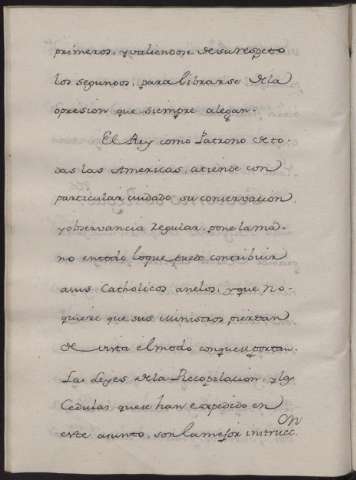 primeros, y valiendose de su respeto
los segundos, para librarse de la
opresion que siempre alegan.
El Rey como Patrono de to-
das las Americas, atiende con
particular cuidado su conservacion,
y observancia Regular, pone la ma-
no en todo lo que puede contribuir
a sus Catholicos anelos, y que no
quiere que sus Ministros pierdan
de vista el modo con que se portan.
Las Leyes de la Recopilacion, y las
Cedulas que se han expedido en
este asunto, son la mejor instrucc.
on